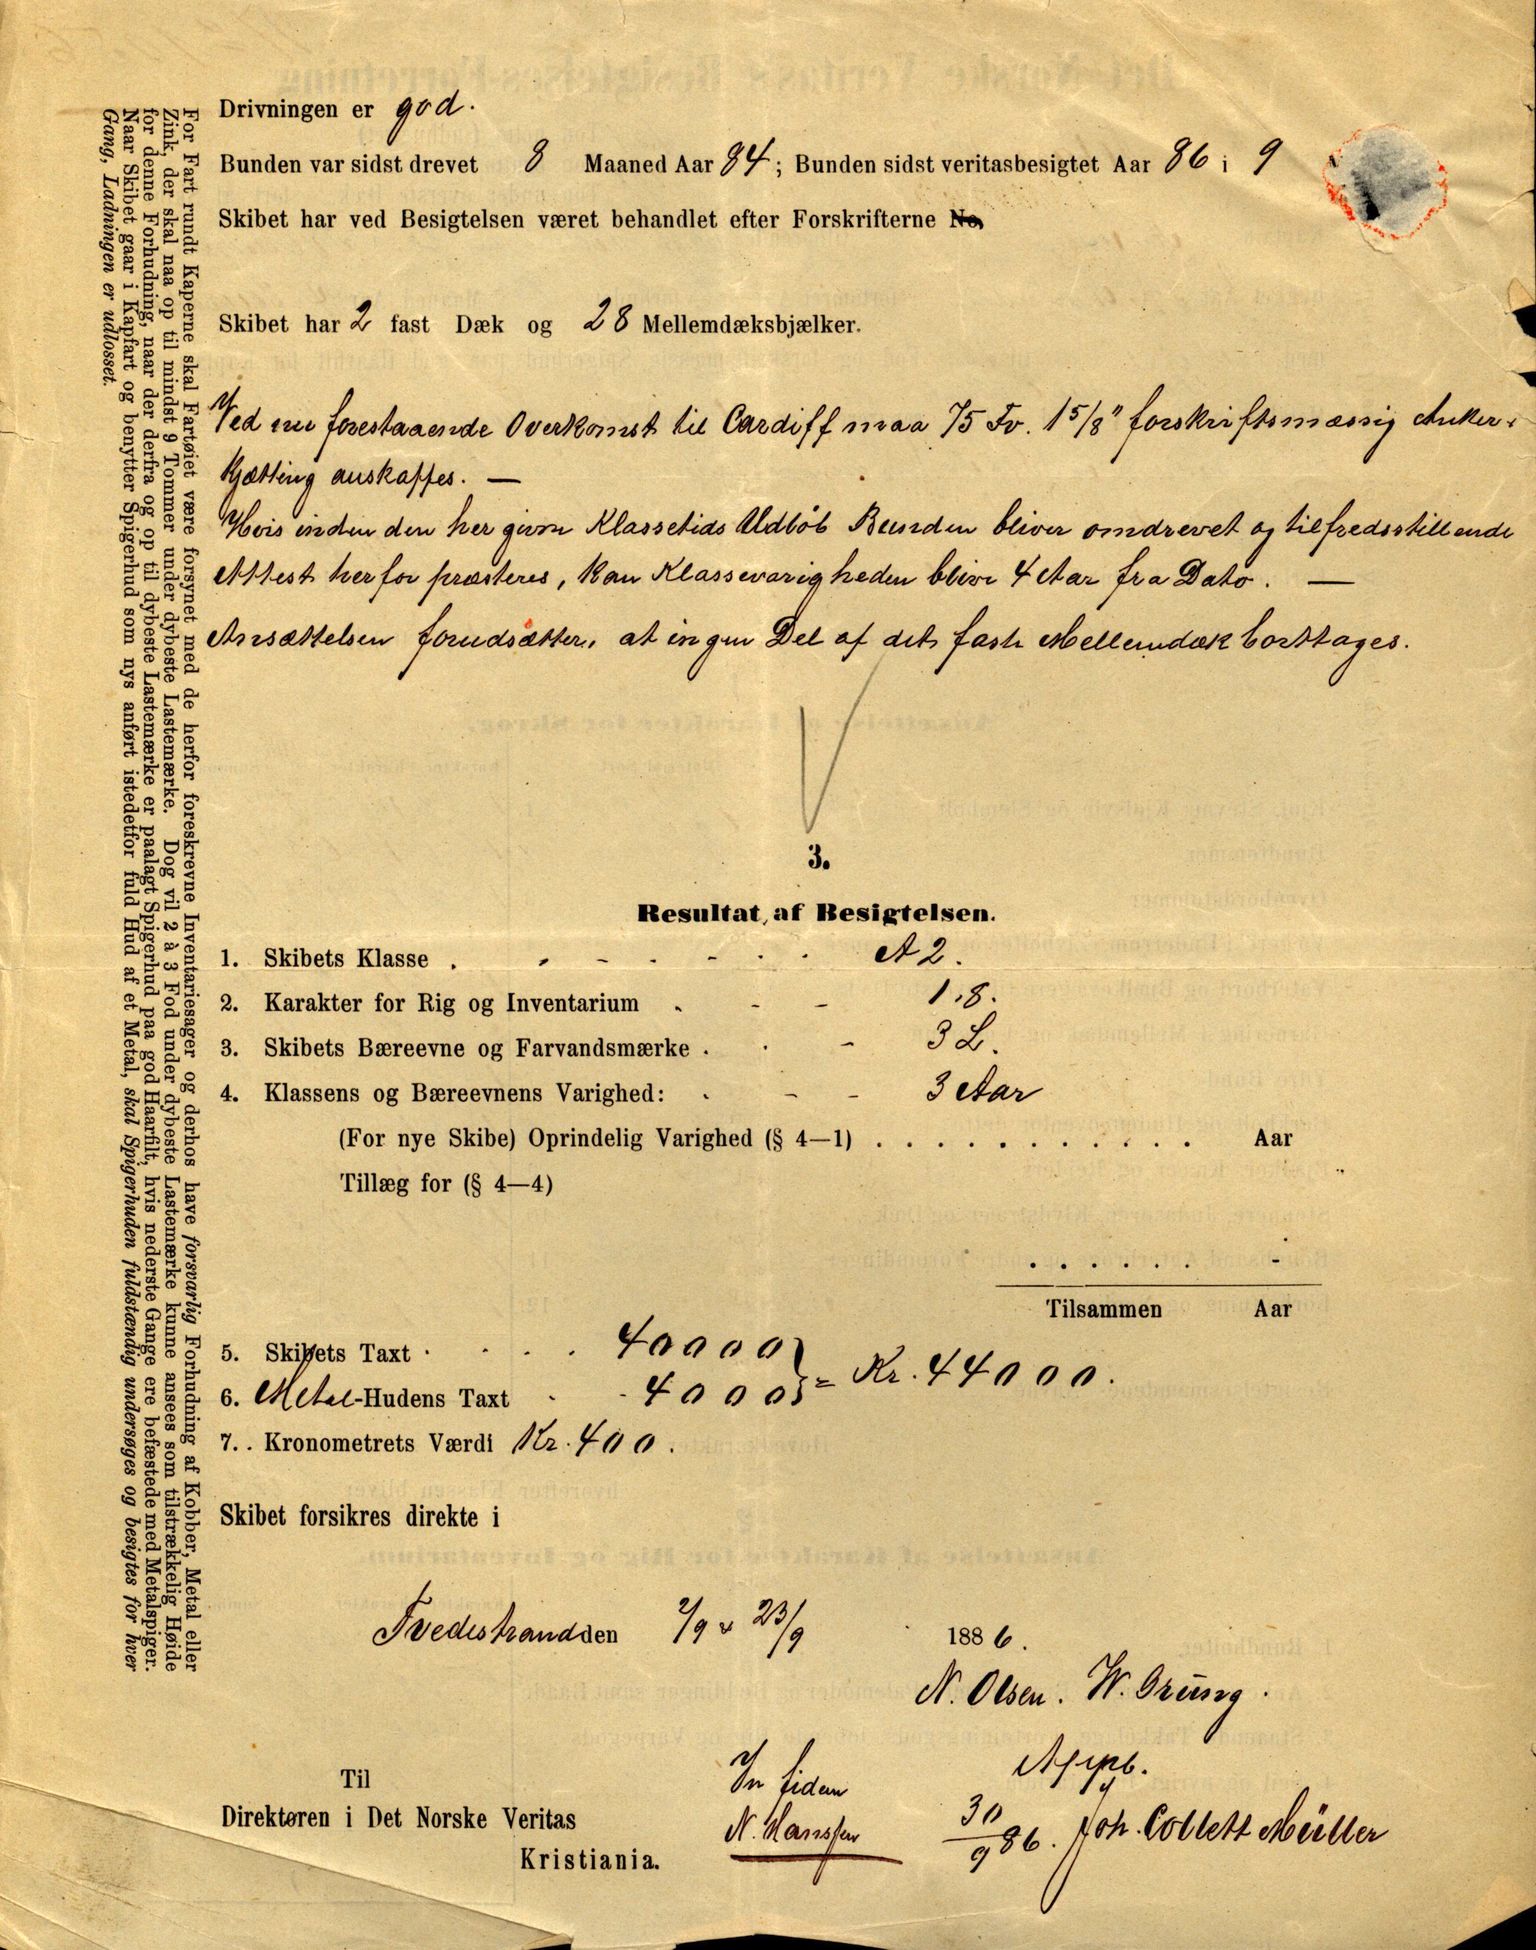 Drivningen er god.
Bunden var sidst drevet 8 Maaned Aar 84; Bunden sidst veritasbesigtet Aar 86 i 9
Skibet har ved Besigtelsen været behandlet efter Forskrifterne No,
Skibet har 2 fast Dæk og 28 Mellemdæksbjælker.
Ved nu forestaaende Overkomst til Cardiff maa 75 Fv. 1 5/8" forskriftsmæssig Anker-
Kjætting anskaffes. —
Hvis inden den her givne Klassetids Udløb Bunden bliver omdrevet og tilfredsstillende
Attest herfor præsteres, kan Klassevarigheden blive 4 Aar fra Dato. —
Ansættelsen forudsætter, at ingen Del af det faste Mellemdæk borttages.
3.
Resultat af Besigtelsen.
1. Skibets Klasse . . - . - . . A 2.
2. Karakter for Rig og Inventarium . - - 1.8.
3. Skibets Bæreevne og Farvandsmærke . . - 3 L.
4. Klassens og Bæreevnens Varighed: . - - 3 Aar
(For nye Skibe) Oprindelig Varighed (§ 4—1) . . . . . . . . . . . . Aar
Tillæg for (§ 4—4)
. . . . . . -
Tilsammen Aar
5. Skibets Taxt . . . . 40000
6. Metal-Hudens Taxt . . 4000 } = Kr. 44000.
7. . Kronometrets Værdi Kr. 400.
Skibet forsikres direkte i
Tvedestrand den 2/9 & 23/9 1886.
N. Olsen. W. Grung.
Til
Direktøren i Det Norske Veritas
Kristiania.
In fidem
N. Hanssen
App.
30/9 86. Joh. Collett Müller
For Fart rundt Kaperne skal Fartøiet være forsynet med de herfor foreskrevne Inventariesager og derhos have forsvarlig Forhudning af Kobber, Metal eller
Zink, der skal naa op til mindst 9 Tommer under dybeste Lastemærke. Dog vil 2 à 3 Fod under dybeste Lastemærke kunne ansees som tilstrækkelig Høide
for denne Forhudning, naar der derfra og op til dybeste Lastemærke er paalagt Spigerhud paa god Haarfilt, hvis nederste Gange ere befæstede med Metalspiger.
Naar Skibet gaar i Kapfart og benytter Spigerhud som nys anført istedetfor fuld Hud af et Metal, skal Spigerhuden fuldstændig undersøges og besigtes for hver
Gang, Ladningen er udlosset.